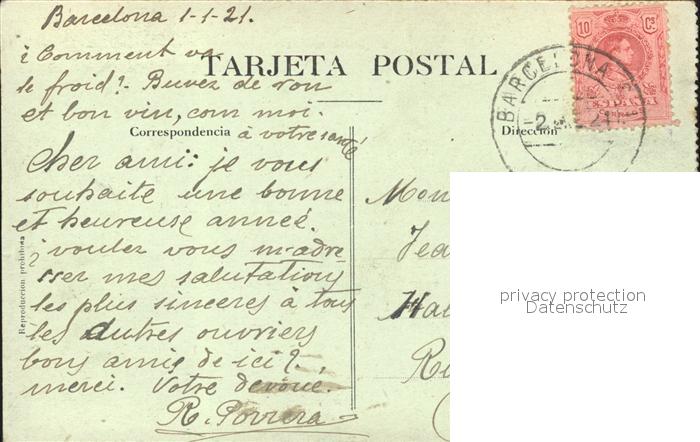 Barcelona 1-1-21.
¿Comment va
le froid?- Buvez de
et bon vin, com moi.
à votre santé!
TARJETA POSTAL
Correspondencia
Dirección
Cher ami: je vous
souhaite une bonne
et heureuse anneé.
¿voulez vous m-adre
sser mes salutations
les plus sinceres à tous
les autres ouvriers
bons amis de ici?
merci. Votre devoué.
R.
Reproduccion prohibida
10 Cs
BARCELONA
ESPAÑA
Mon
Jea
Hau
privacy protection
Datenschutz